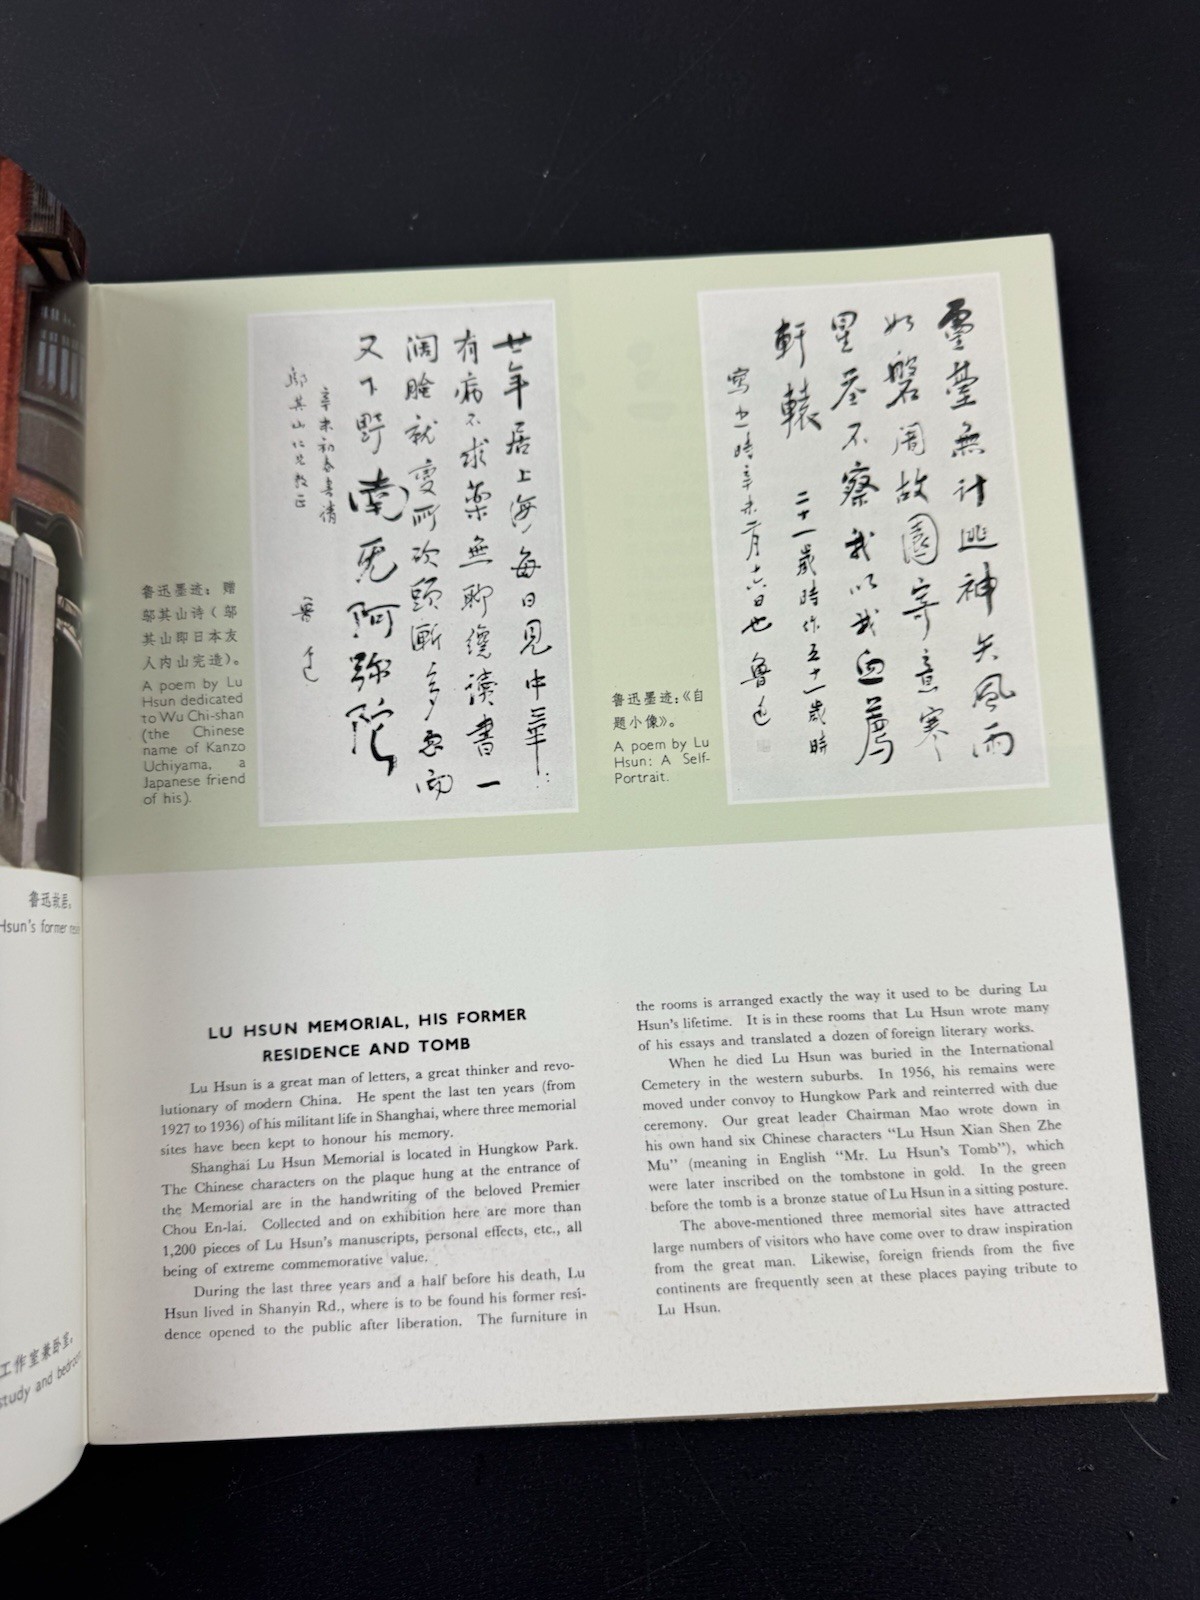 鲁迅故居。
Hsun's former resi
工作室兼卧室。
study and bedroom
鲁迅墨迹：赠
邬其山诗（邬
其山即日本友
人内山完造）。
A poem by Lu
Hsun dedicated
to Wu Chi-shan
(the Chinese
name of Kanzo
Uchiyama, a
Japanese friend
of his).
廿年居上海每日見中華：
有病不求藥無聊纔讀書一
闊臉就變所砍頭漸多忽而
又下野南无阿弥陀
辛未初春書請
鄔其山仁兄教正
魯迅
鲁迅墨迹：《自
题小像》。
A poem by Lu
Hsun: A Self-
Portrait.
靈臺無計逃神矢風雨
如磐闇故園寄意寒
星荃不察我以我血薦
軒轅 二十一歲時作五十一歲時
寫之時辛未二月十六日也 魯迅
LU HSUN MEMORIAL, HIS FORMER
RESIDENCE AND TOMB
Lu Hsun is a great man of letters, a great thinker and revo-
lutionary of modern China. He spent the last ten years (from
1927 to 1936) of his militant life in Shanghai, where three memorial
sites have been kept to honour his memory.
Shanghai Lu Hsun Memorial is located in Hungkow Park.
The Chinese characters on the plaque hung at the entrance of
the Memorial are in the handwriting of the beloved Premier
Chou En-lai. Collected and on exhibition here are more than
1,200 pieces of Lu Hsun's manuscripts, personal effects, etc., all
being of extreme commemorative value.
During the last three years and a half before his death, Lu
Hsun lived in Shanyin Rd., where is to be found his former resi-
dence opened to the public after liberation. The furniture in
the rooms is arranged exactly the way it used to be during Lu
Hsun's lifetime. It is in these rooms that Lu Hsun wrote many
of his essays and translated a dozen of foreign literary works.
When he died Lu Hsun was buried in the International
Cemetery in the western suburbs. In 1956, his remains were
moved under convoy to Hungkow Park and reinterred with due
ceremony. Our great leader Chairman Mao wrote down in
his own hand six Chinese characters "Lu Hsun Xian Shen Zhe
Mu" (meaning in English "Mr. Lu Hsun's Tomb"), which
were later inscribed on the tombstone in gold. In the green
before the tomb is a bronze statue of Lu Hsun in a sitting posture.
The above-mentioned three memorial sites have attracted
large numbers of visitors who have come over to draw inspiration
from the great man. Likewise, foreign friends from the five
continents are frequently seen at these places paying tribute to
Lu Hsun.